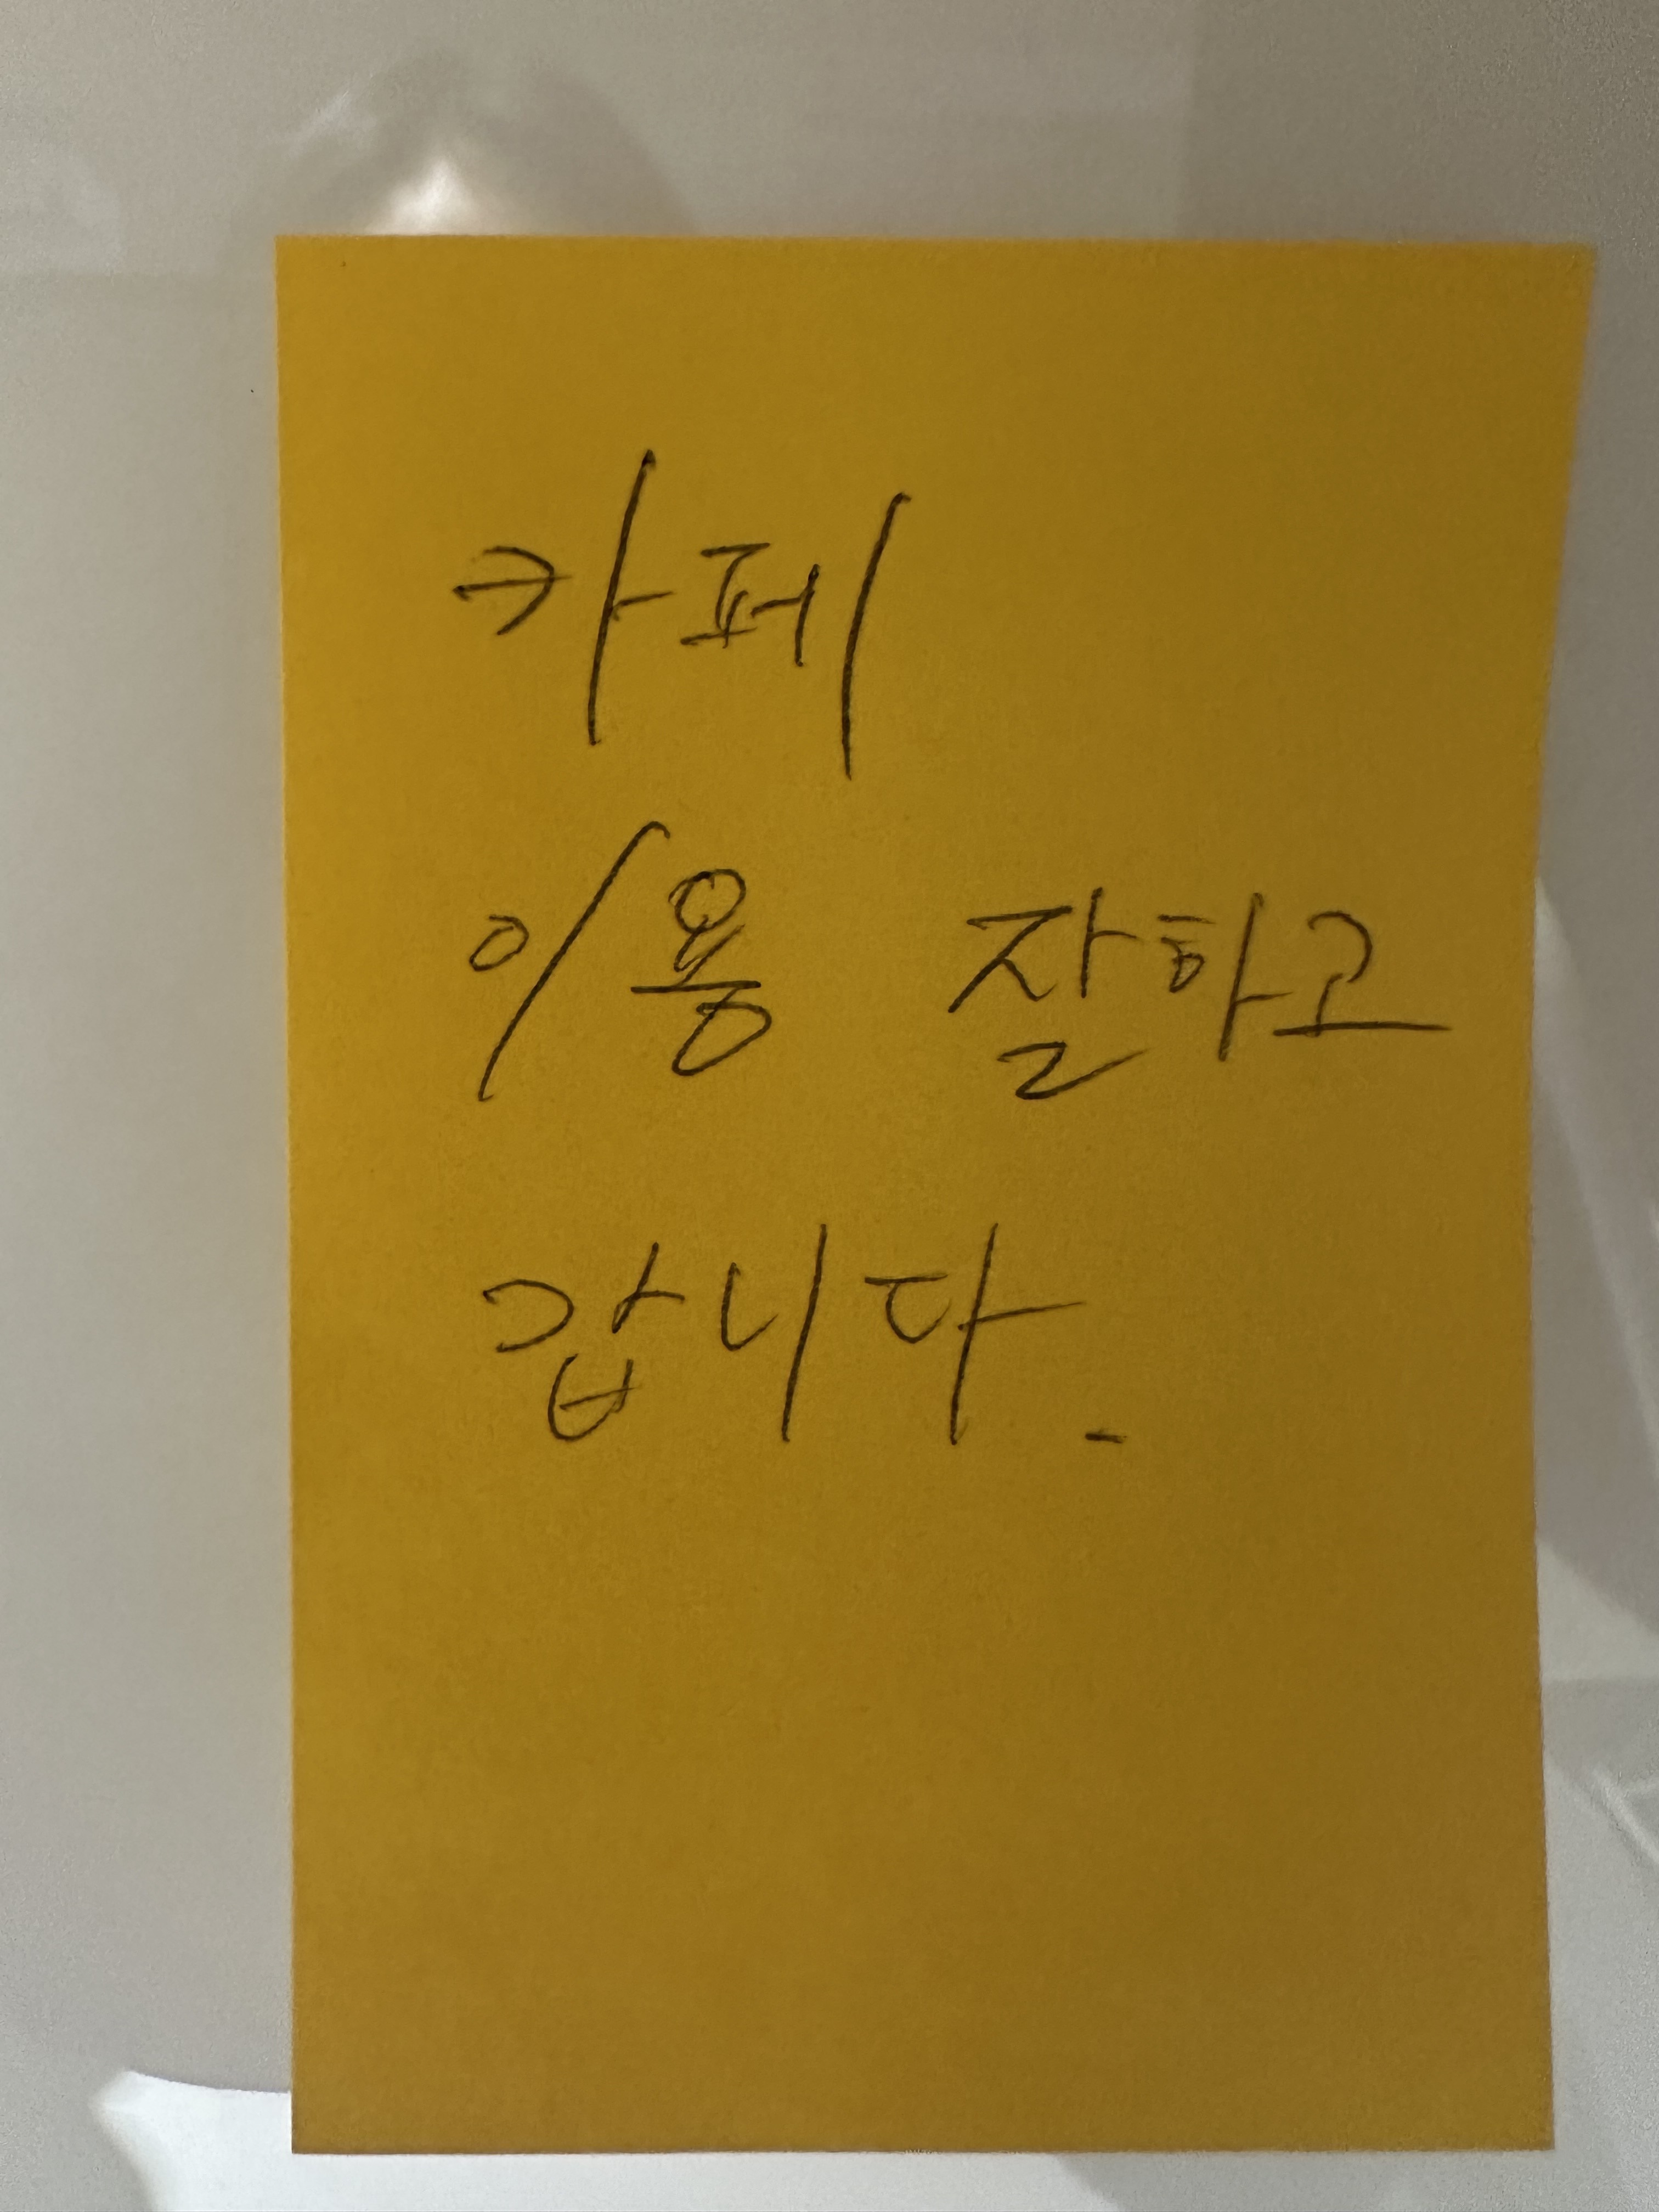 카페
이용 잘하고
갑니다.